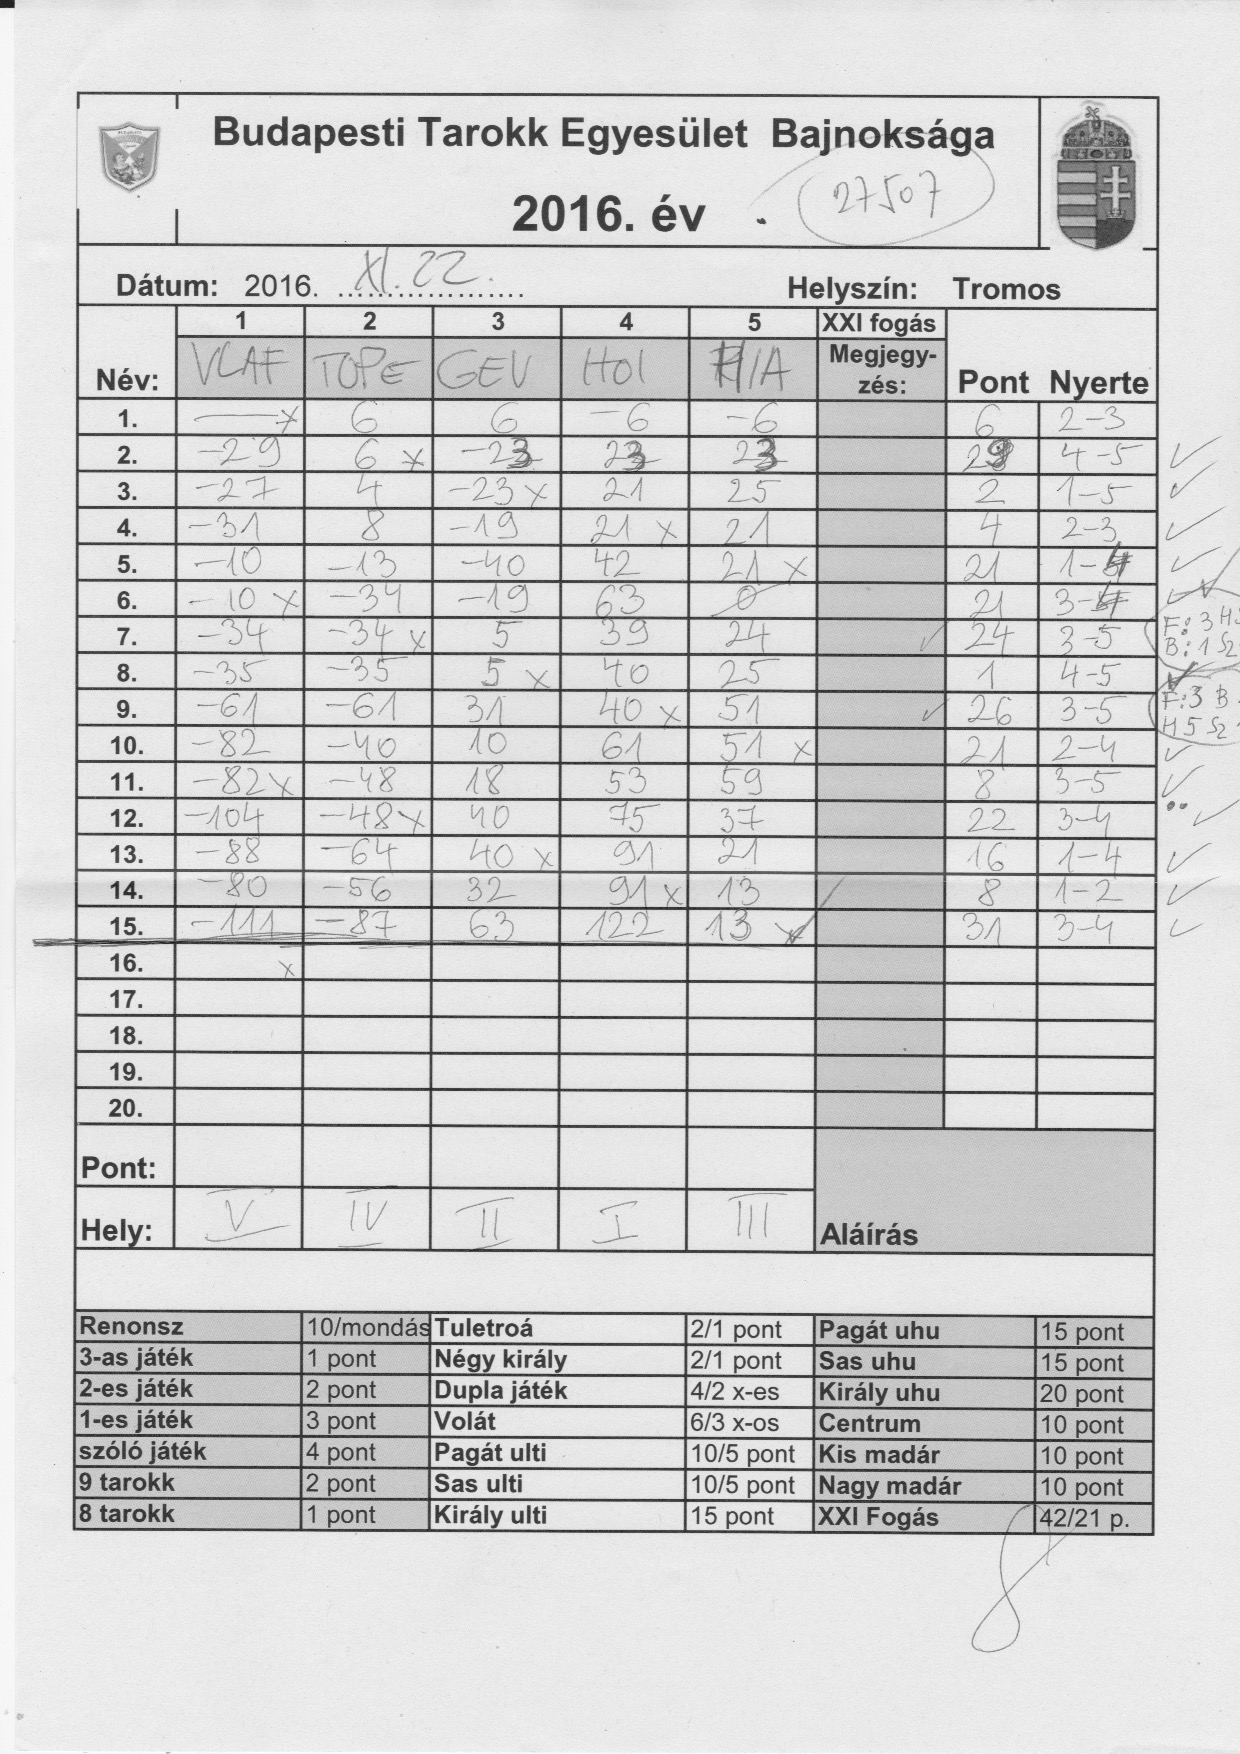 Budapesti Tarokk Egyesület Bajnoksága
2016. év
27507
Dátum: 2016. XI. 22. Helyszín: Tromos
1 2 3 4 5 XXI fogás
Név: VLAF TOPE GEV HOI Megjegy-zés: Pont Nyerte
1. — x 6 6 -6 -6 6 2-3
2. -29 6 x -23 23 23 29 4-5 ✓
3. -27 4 -23 x 21 25 2 1-5 ✓
4. -31 8 -19 21 x 21 4 2-3 ✓
5. -10 -13 -40 42 21 x 21 1-4 ✓
6. -10 x -34 -19 63 0 21 3-4 ✓
7. -34 -34 x 5 39 24 ✓ 24 3-5 F: 3 B: 1
8. -35 -35 5 x 40 25 1 4-5 ✓
9. -61 -61 31 40 x 51 ✓ 26 3-5 F: 3 B H 5
10. -82 -40 10 61 51 x 21 2-4 ✓
11. -82 x -48 18 53 59 8 3-5 ✓
12. -104 -48 x 40 75 37 22 3-4 ✓
13. -88 -64 40 x 91 21 16 1-4 ✓
14. -80 -56 32 91 x 13 8 1-2 ✓
15. -111 -87 63 122 13 x 31 3-4 ✓
16. x
17.
18.
19.
20.
Pont:
Hely: V IV II I III Aláírás
Renonsz 10/mondás Tuletroá 2/1 pont Pagát uhu 15 pont
3-as játék 1 pont Négy király 2/1 pont Sas uhu 15 pont
2-es játék 2 pont Dupla játék 4/2 x-es Király uhu 20 pont
1-es játék 3 pont Volát 6/3 x-os Centrum 10 pont
szóló játék 4 pont Pagát ulti 10/5 pont Kis madár 10 pont
9 tarokk 2 pont Sas ulti 10/5 pont Nagy madár 10 pont
8 tarokk 1 pont Király ulti 15 pont XXI Fogás 42/21 p.
8